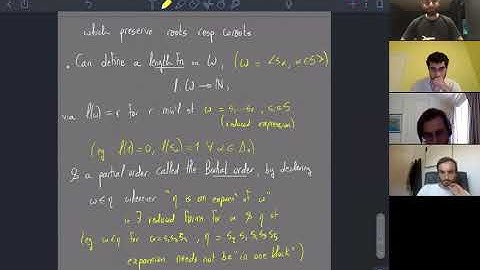 which preserve roots resp. coroots
• Can define a length fn on W, (W = <sα, α∈S>)
l: W → ℕ,
via l(w) = r for r min'l st w = s₁…sᵣ, sᵢ∈S
(reduced expression)
(eg l(1)=0, l(sα)=1 ∀ α∈Δ₀)
& a partial order called the Bruhat order, by declaring
w≤η whenever "η is an expansⁿ of w"
ie ∃ reduced forms for w & η st
(eg w<η for w= , η =
expansion needs not be "in one block")